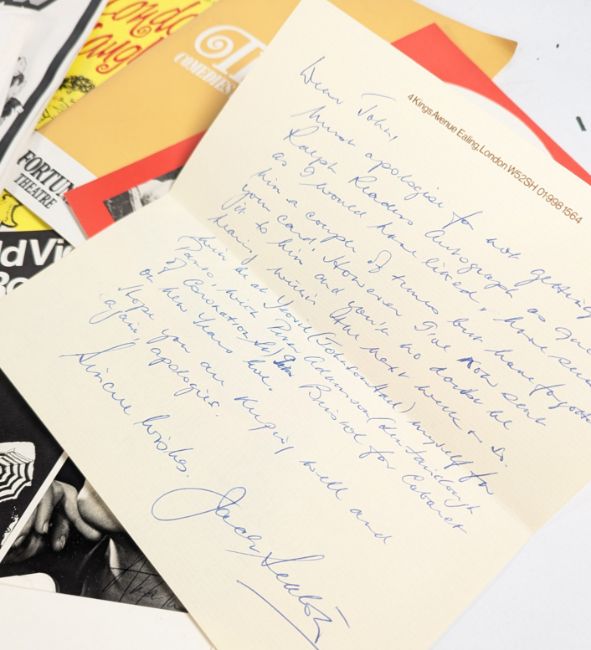 4 Kings Avenue Ealing, London W5 2SH 01 998 1564
Dear John,
Much apologise for not getting
Ralph Readers autograph as quic
as I would have liked, I have seen
him a couple of times but have forgotten
your card. However I've now sent
it to him and you'll no doubt be
hearing within the next week or so.
I'm at Yeovil (Johnson Hall) myself for
Panto, with Peter Adamson (Len
of Coronation St) Bristol for Cabaret
on New Years Eve.
Hope you are keeping well and
again, apologies.
Sincere Wishes.
London
Laugh
COMEDIES
FORTUN
THEATRE
ld Vi